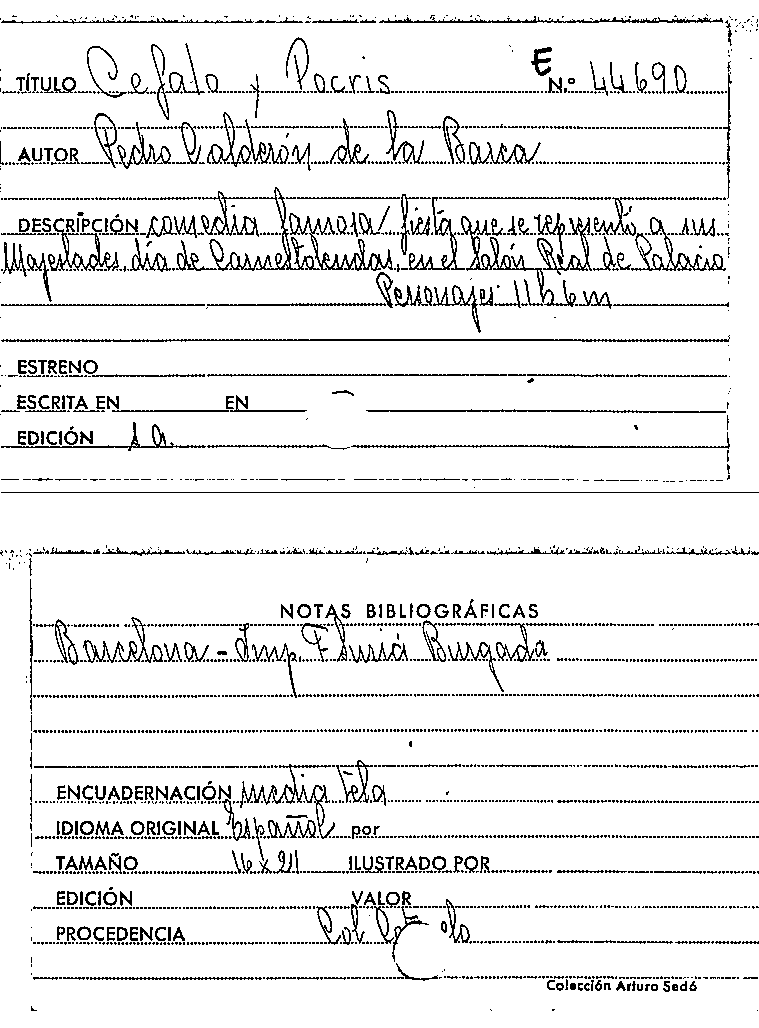 TÍTULO Cefalo y Pocris E N.º 44690
AUTOR Pedro Calderón de la Barca
DESCRIPCIÓN comedia famosa/ fiesta que se representó a sus
Majestades, día de Carnestolendas, en el Salón Real de Palacio
Personajes 11h 6m
ESTRENO
ESCRITA EN EN
EDICIÓN s a.
NOTAS BIBLIOGRÁFICAS
Barcelona - Imp. Suriá Burgada
ENCUADERNACIÓN media tela
IDIOMA ORIGINAL Español por
TAMAÑO 16 x 21 ILUSTRADO POR
EDICIÓN VALOR
PROCEDENCIA Col
Colección Arturo Sedó